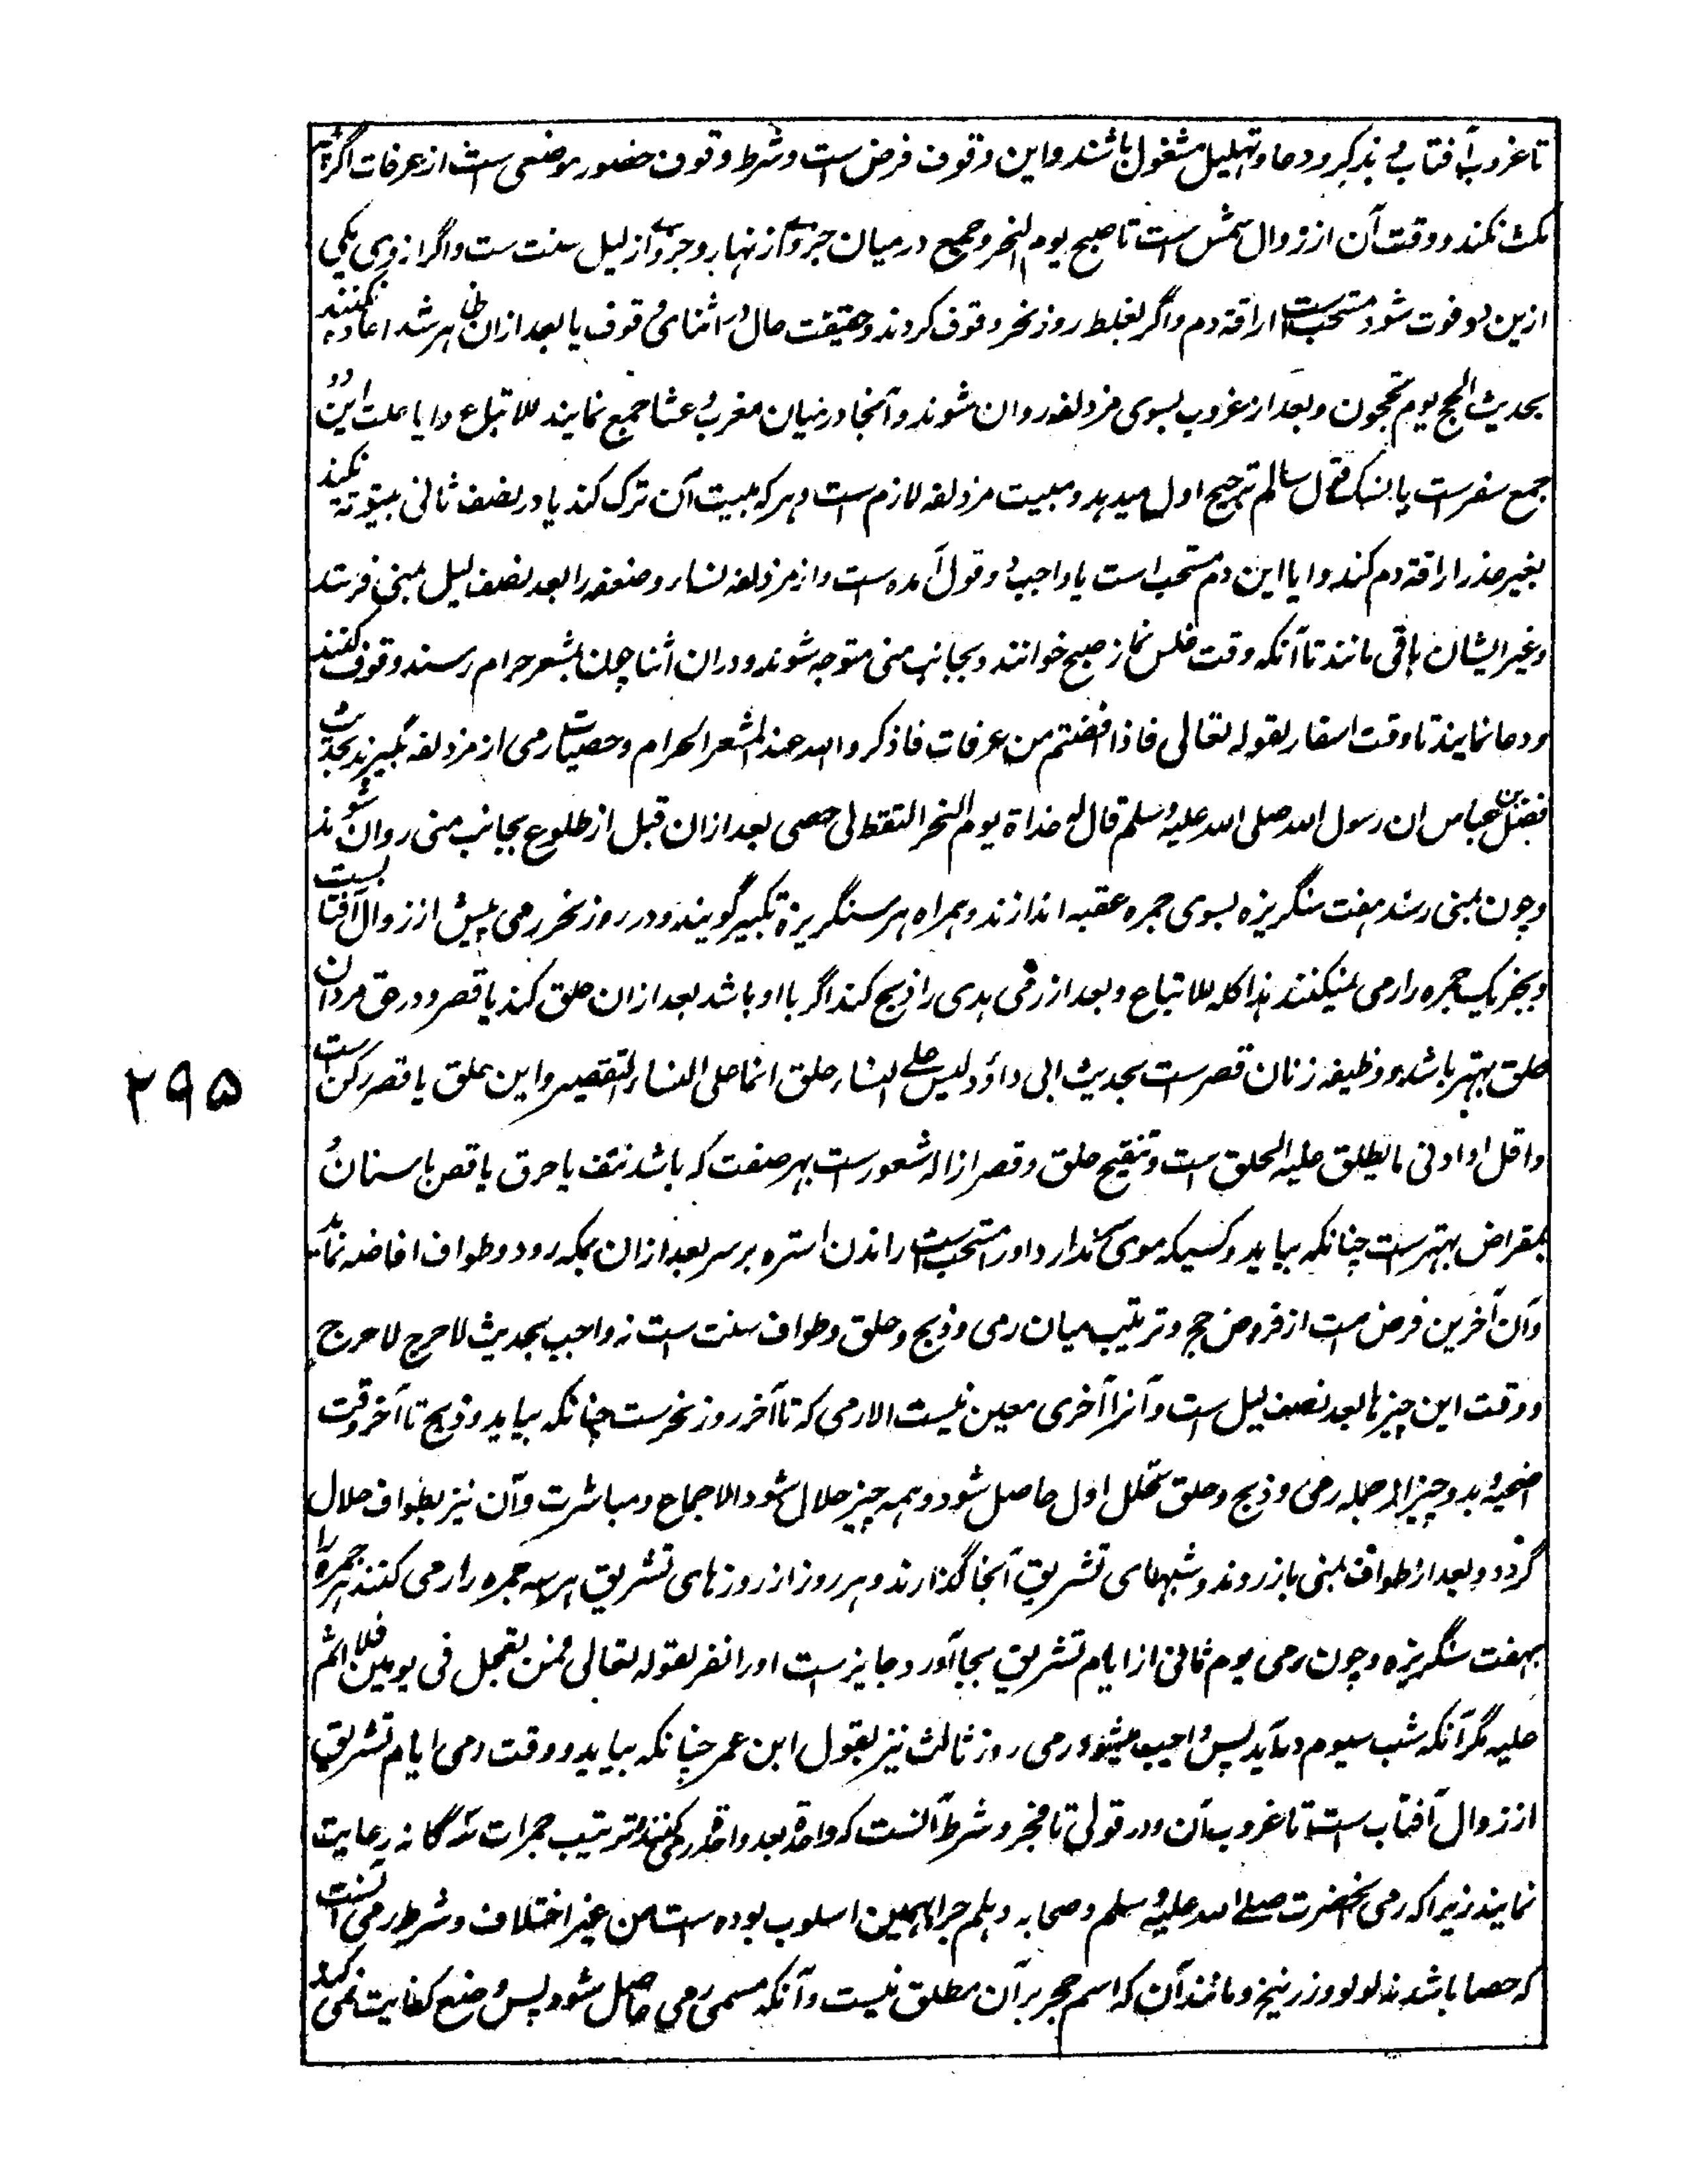 تا غروب آفتاب و بذکر و دعا و تهلیل مشغول باشند و این وقوف فرض ست و شرط وقوف حضور موضعی ست از عرفات اگرچه
مکث نکند و وقت آن از زوال شمس ست تا صبح یوم النحر و جمع درمیان جزوے از نهار و جزوے از لیل سنت ست و اگر از وی یکی
ازین دو فوت شود مستحب ست اراقه دم و اگر بغلط روز نحر وقوف کردند و حقیقت حال در اثنای وقوف یا بعد ازان ظاهر شد اعاده نکنند
بحدیث الحج یوم تحجون و بعد از غروب بسوی مزدلفه روان شوند و آنجا درمیان مغرب و عشا جمع نمایند للاتباع و ایا علت این
جمع سفر ست یا نسک قول سالم ترجیح اول میدهد و مبیت مزدلفه لازم ست و هر که مبیت آن ترک کند یا در نصف ثانی بیتوته نکند
بغیر عذر اراقه دم کند و ایا این دم مستحب است یا واجب دو قول آمده ست و از مزدلفه نساء و ضعفه را بعد نصف لیل بمنی فرستد
و غیر ایشان باقی مانند تا آنکه وقت غلس نماز صبح خوانند و بجانب منی متوجه شوند و دران اثنا چون بمشعر حرام رسند وقوف کنند
و دعا نمایند تا وقت اسفار لقوله تعالی فاذا افضتم من عرفات فاذکروا الله عند المشعر الحرام و حصیات رمی از مزدلفه بگیرند بحدیث
فضل بن عباس ان رسول الله صلی الله علیه و سلم قال له غداة یوم النحر التقط لی حصی بعد ازان قبل از طلوع بجانب منی روان شوند
و چون بمنی رسند هفت سنگریزه بسوی جمره عقبه اندازند و همراه هر سنگریزه تکبیر گویند و در روز نحر رمی پیش از زوال آفتاب ست
و بجز یک جمره را رمی نمیکنند هذا کله للاتباع و بعد از رمی هدی را ذبح کند اگر با او باشد بعد ازان حلق کند یا قصر و در حق مردان
حلق بهتر باشد و وظیفه زنان قصر ست بحدیث ابی داؤد لیس علے النساء حلق انما علی النساء التقصیر و این حلق یا قصر رکن ست
و اقل او ادنی ما یطلق علیه الحلق ست و تنقیح حلق و قصر ازاله شعور ست بهر صفت که باشد نتف یا حرق یا قص باسنان و
بمقراض بهتر ست چنانکه بیاید و کسیکه موی سر ندارد اورا مستحب ست راندن استره بر سر بعد ازان بمکه رود و طواف افاضه نماید
و آن آخرین فرض ست از فروض حج و ترتیب میان رمی و ذبح و حلق و طواف سنت ست نه واجب بحدیث لا حرج لا حرج
و وقت این چیزها بعد نصف لیل ست و آنرا آخری معین نیست الا رمی که تا آخر روز نحر ست چنانکه بیاید و ذبح تا آخر وقت
اضحیه و بدو چیز از جمله رمی و ذبح و حلق تحلل اول حاصل شود و همه چیز حلال شود الا جماع و مباشرت و آن نیز بطواف حلال
گردد و بعد از طواف بمنی باز روند و شبهای تشریق آنجا گذارند و هر روز از روزهای تشریق هر سه جمره را رمی کنند هر جمره را
بهفت سنگریزه و چون رمی یوم ثانی از ایام تشریق بجا آورد جایز ست اورا نفر لقوله تعالی فمن تعجل فی یومین فلا اثم
علیه مگر آنکه شب سیوم درآید پس واجب میشود رمی روز ثالث نیز بقول ابن عمر چنانکه بیاید و وقت رمی ایام تشریق
از زوال آفتاب ست تا غروب آن و در قولی تا فجر و شرط آنست که واحدة بعد واحدة رمی کنند و ترتیب جمرات سه گانه رعایت
نمایند زیرا که رمی آنحضرت صلے الله علیه و سلم و صحابه و هلم جرا بهمین اسلوب بوده ست من غیر اختلاف و شرط رمی آنست
که حصا باشد نه لولو و زرنیخ و مانند آن که اسم حجر بر آن مطلق نیست و آنکه مسمی رمی حاصل شود پس وضع کفایت نمی کند
۲۹۵